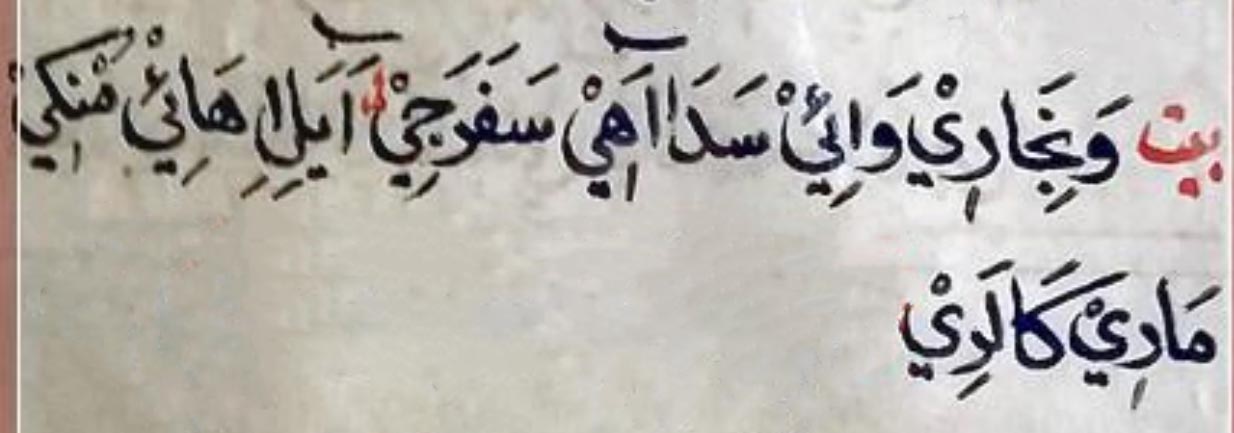 بيت وَنِجَارِيْ وَائِيْ سَدَا آهِيْ سَفَرَجِيْ آيَلِ هَائِيْ مُنْکِيْ
مَارِيْ کَالَرِيْ